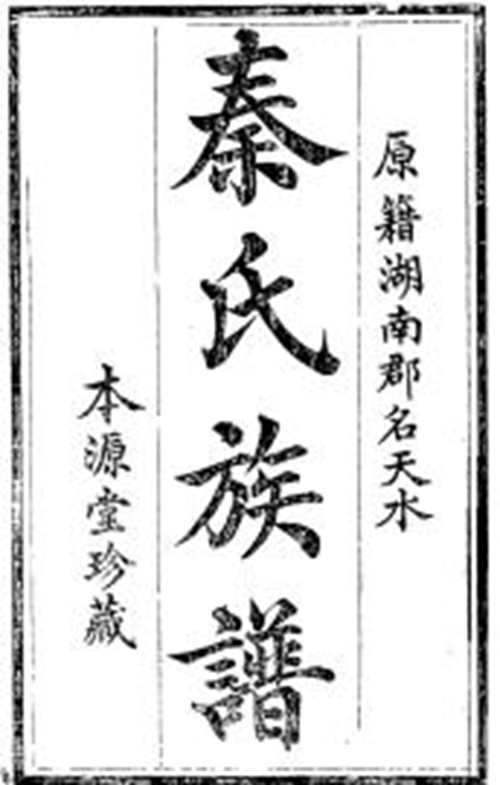 原籍湖南郡名天水
秦氏族譜
本源堂珍藏